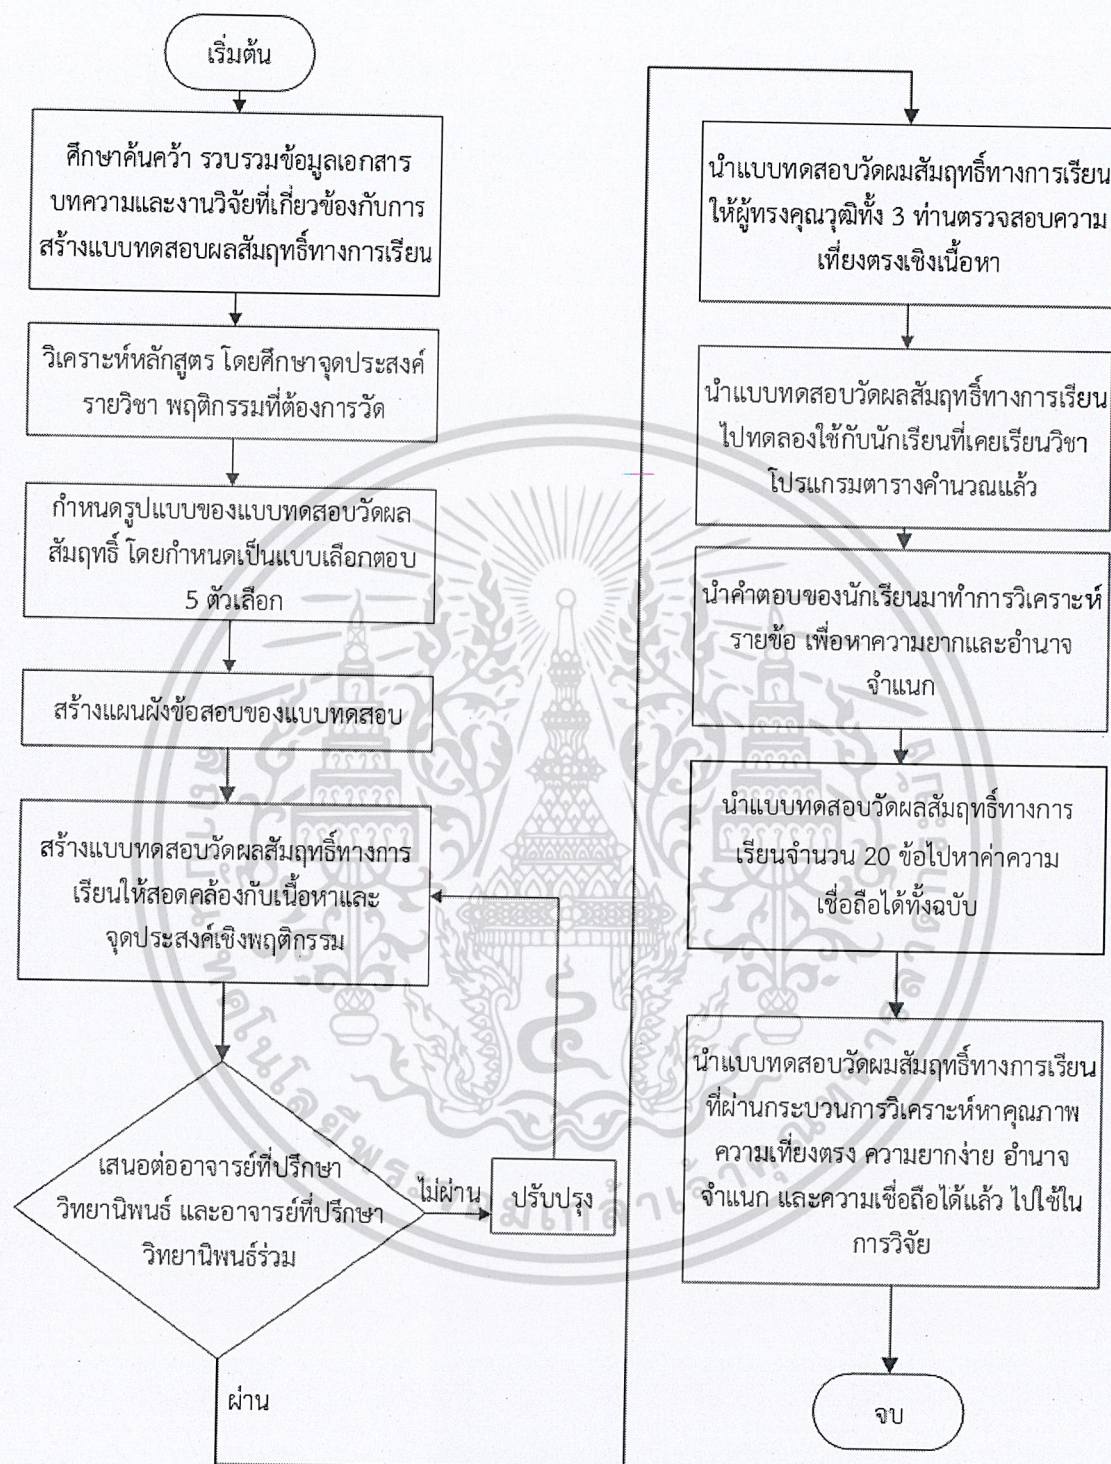 เริ่มต้น
ศึกษาค้นคว้า รวบรวมข้อมูลเอกสาร
บทความและงานวิจัยที่เกี่ยวข้องกับการ
สร้างแบบทดสอบผลสัมฤทธิ์ทางการเรียน
วิเคราะห์หลักสูตร โดยศึกษาจุดประสงค์
รายวิชา พฤติกรรมที่ต้องการวัด
กำหนดรูปแบบของแบบทดสอบวัดผล
สัมฤทธิ์ โดยกำหนดเป็นแบบเลือกตอบ
5 ตัวเลือก
สร้างแผนผังข้อสอบของแบบทดสอบ
สร้างแบบทดสอบวัดผลสัมฤทธิ์ทางการ
เรียนให้สอดคล้องกับเนื้อหาและ
จุดประสงค์เชิงพฤติกรรม
เสนอต่ออาจารย์ที่ปรึกษา
วิทยานิพนธ์ และอาจารย์ที่ปรึกษา
วิทยานิพนธ์ร่วม
ไม่ผ่าน
ปรับปรุง
ผ่าน
นำแบบทดสอบวัดผมสัมฤทธิ์ทางการเรียน
ให้ผู้ทรงคุณวุฒิทั้ง 3 ท่านตรวจสอบความ
เที่ยงตรงเชิงเนื้อหา
นำแบบทดสอบวัดผลสัมฤทธิ์ทางการเรียน
ไปทดลองใช้กับนักเรียนที่เคยเรียนวิชา
โปรแกรมตารางคำนวณแล้ว
นำคำตอบของนักเรียนมาทำการวิเคราะห์
รายข้อ เพื่อหาความยากและอำนาจ
จำแนก
นำแบบทดสอบวัดผลสัมฤทธิ์ทางการ
เรียนจำนวน 20 ข้อไปหาค่าความ
เชื่อถือได้ทั้งฉบับ
นำแบบทดสอบวัดผมสัมฤทธิ์ทางการเรียน
ที่ผ่านกระบวนการวิเคราะห์หาคุณภาพ
ความเที่ยงตรง ความยากง่าย อำนาจ
จำแนก และความเชื่อถือได้แล้ว ไปใช้ใน
การวิจัย
จบ
สถาบันเทคโนโลยีพระจอมเกล้าเจ้าคุณทหารลาดกระบัง